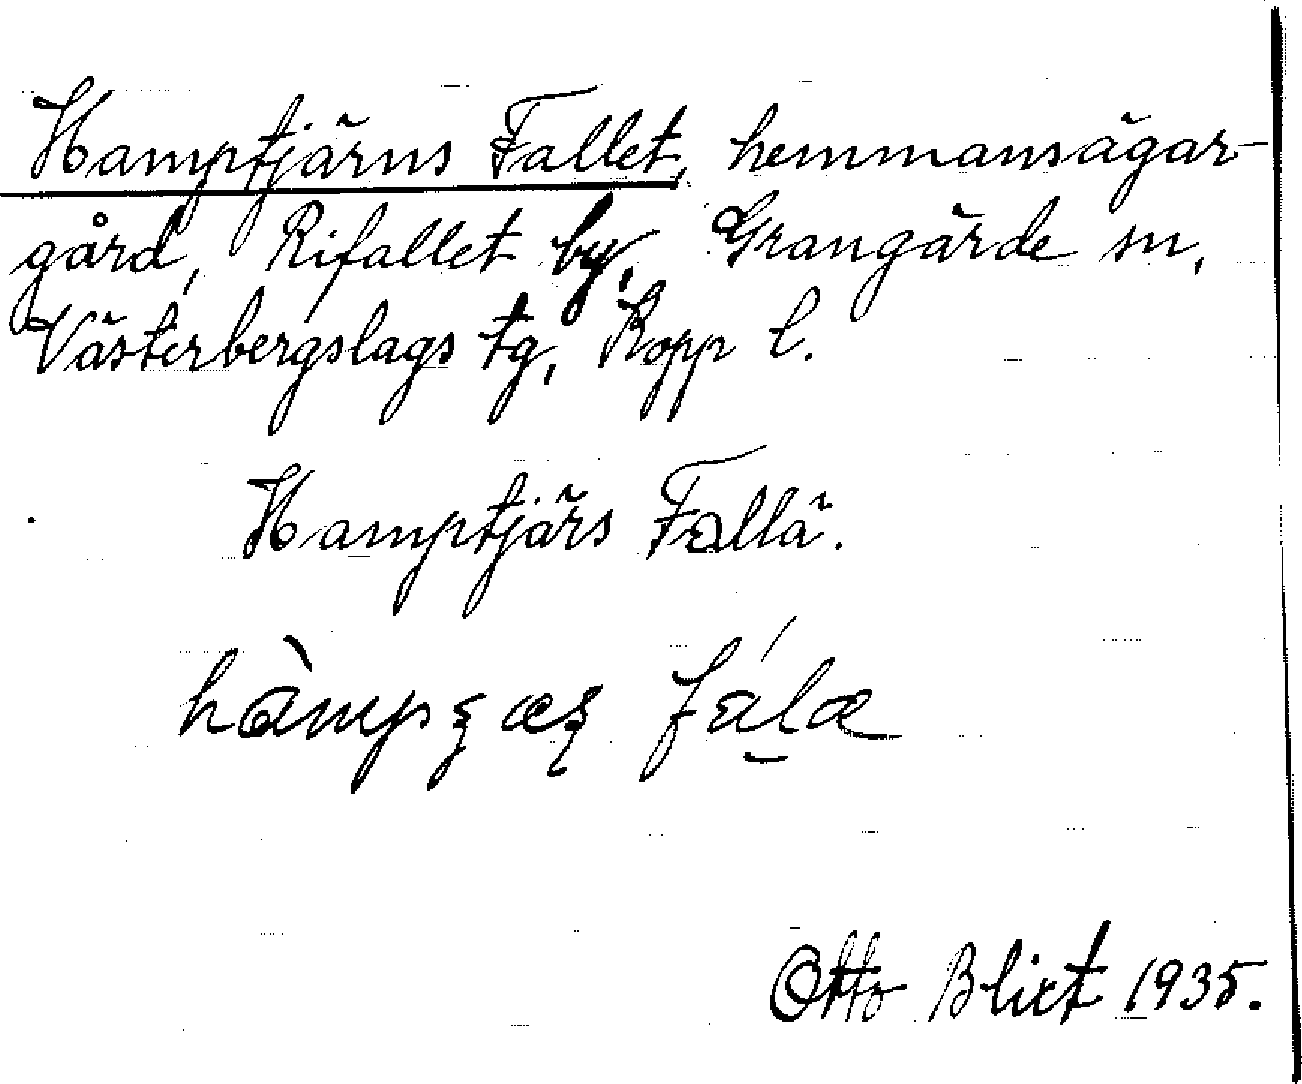 Hamptjärns Fallet, hemmansägar-
gård, Rifallet by, Grangärde sn,
Västerbergslags tg, Kopp l.
Hamptjärs Fallä.
Otto Blixt 1935.